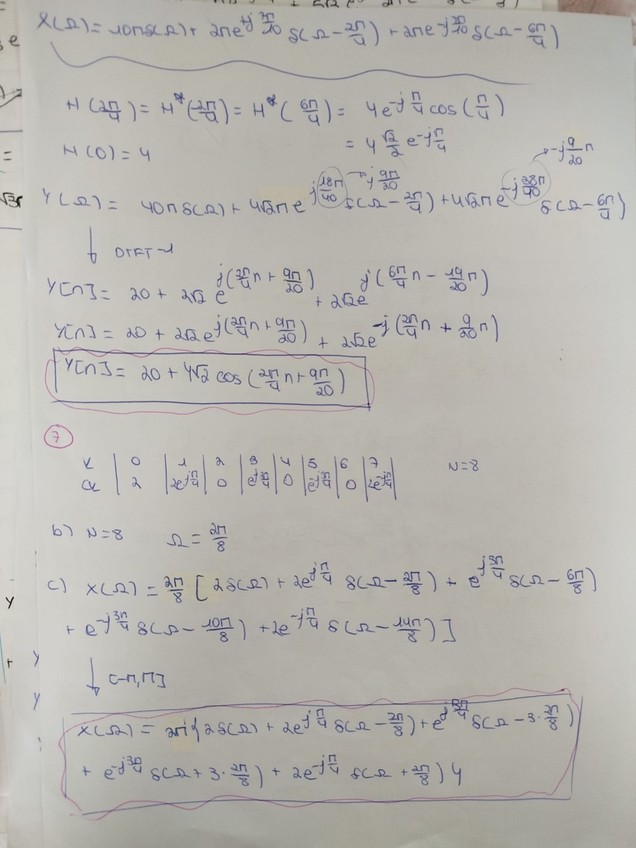 X(Ω) = 10πδ(Ω) + 2πe^{j 7π/20} δ(Ω − 2π/4) + 2πe^{−j 7π/20} δ(Ω − 6π/4)
H(2π/4) = H*(2π/4) = H*(6π/4) = 4e^{−j π/4} cos(π/4)
H(0) = 4 = 4 √2/2 e^{−j π/4}
→ −j 9/20 π
→ j 9π/20
Y(Ω) = 40πδ(Ω) + 4√2π e^{j 18π/40} δ(Ω − 2π/4) + 4√2π e^{−j 38π/40} δ(Ω − 6π/4)
↓ DTFT−1
Y[n] = 20 + 2√2 e^{j(2π/4 n + 9π/20)} + 2√2e^{j(6π/4 n − 19/20 π)}
Y[n] = 20 + 2√2 e^{j(2π/4 n + 9π/20)} + 2√2e^{−j(2π/4 n + 9/20 π)}
Y[n] = 20 + 4√2 cos(2π/4 n + 9π/20)
7
K | 0 | 1 | 2 | 3 | 4 | 5 | 6 | 7 | N=8
Ck | 2 | 2e^{j π/4} | 0 | e^{j 3π/4} | 0 | e^{−j 3π/4} | 0 | 2e^{−j π/4} |
b) N=8 Ω = 2π/8
c) X(Ω) = 2π/8 [2δ(Ω) + 2e^{j π/4} δ(Ω − 2π/8) + e^{j 3π/4} δ(Ω − 6π/8)
+ e^{−j 3π/4} δ(Ω − 10π/8) + 2e^{−j π/4} δ(Ω − 14π/8)]
↓ [−π,π]
X(Ω) = 2π{2δ(Ω) + 2e^{j π/4} δ(Ω − 2π/8) + e^{j 3π/4} δ(Ω − 3·2π/8)
+ e^{−j 3π/4} δ(Ω + 3·2π/8) + 2e^{−j π/4} δ(Ω + 2π/8)}